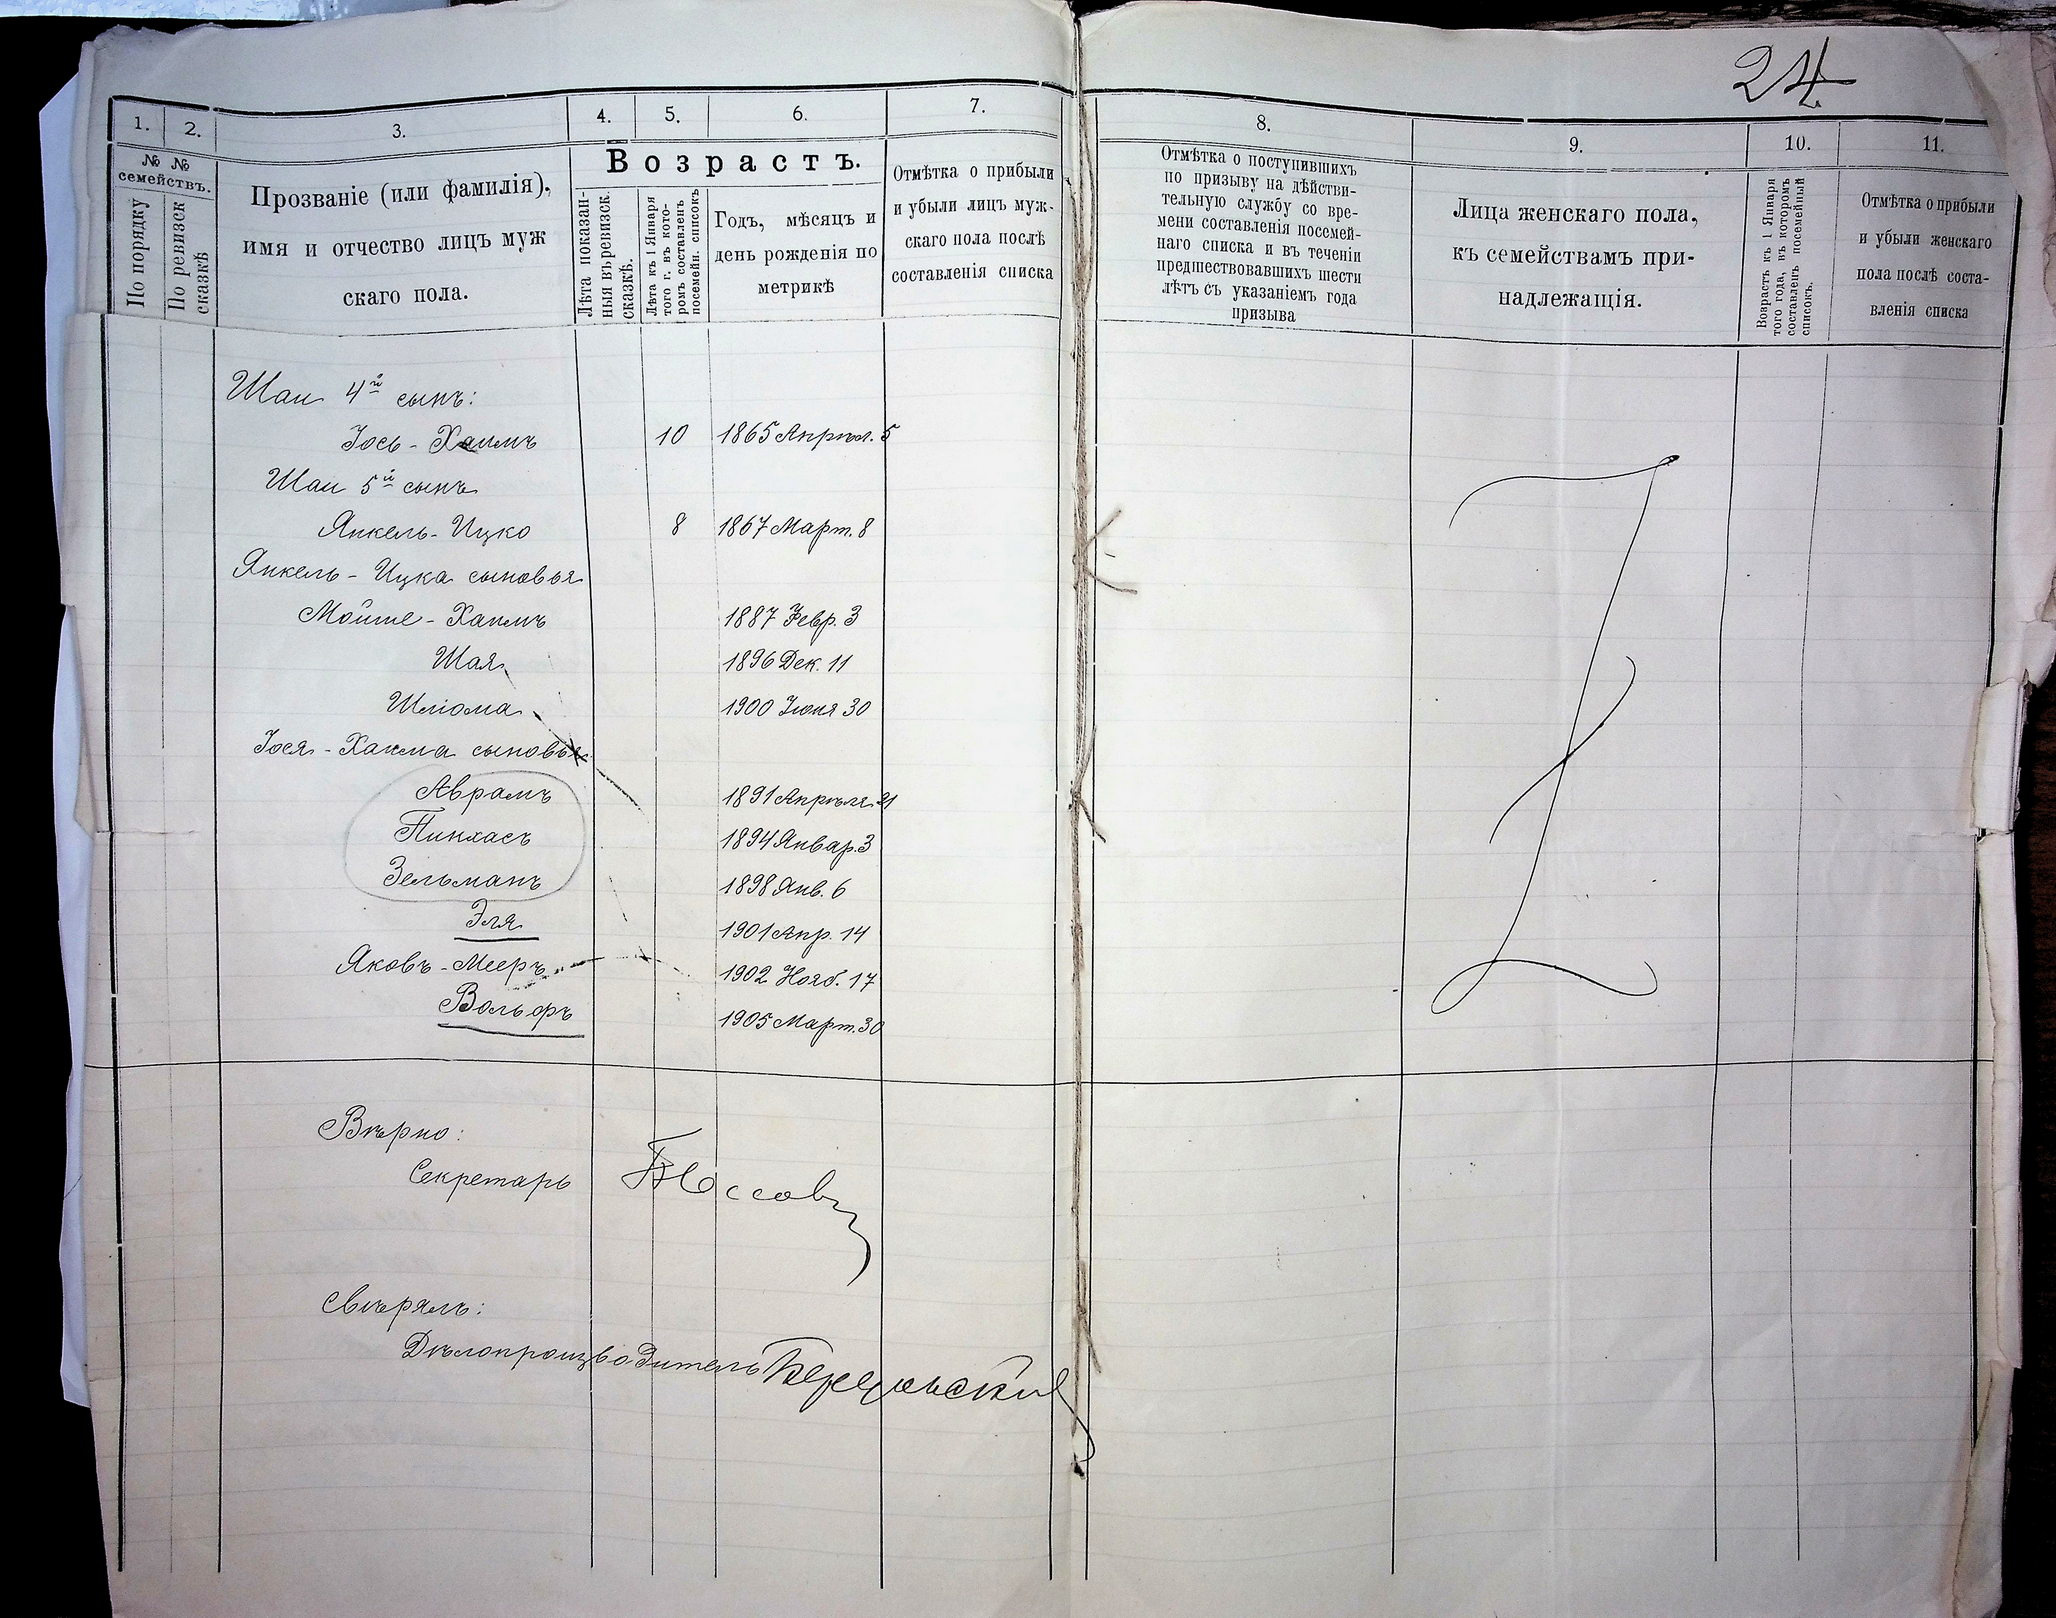 24
1. 2. 3. 4. 5. 6. 7. 8. 9. 10. 11.
№ №
семействъ.
По порядку
По ревизск
сказкѣ
Прозваніе (или фамилія),
имя и отчество лицъ муж
скаго пола.
Возрастъ.
Лѣта показан-
ныя въ ревизск.
сказкѣ.
Лѣта къ 1 Января
того г. въ кото-
ромъ составленъ
посемейн. списокъ
Годъ, мѣсяцъ и
день рожденія по
метрикѣ
Отмѣтка о прибыли
и убыли лицъ муж-
скаго пола послѣ
составленія списка
Отмѣтка о поступившихъ
по призыву на дѣйстви-
тельную службу со вре-
мени составленія посемей-
наго списка и въ теченіи
предшествовавшихъ шести
лѣтъ съ указаніемъ года
призыва
Лица женскаго пола,
къ семействамъ при-
надлежащія.
Возрастъ къ 1 Января
того года, въ которомъ
составленъ посемейный
списокъ.
Отмѣтка о прибыли
и убыли женскаго
пола послѣ соста-
вленія списка
Шаи 4й сынъ:
Іось - Хаимъ 10 1865 Апрѣл. 5
Шаи 5й сынъ
Янкель - Ицко 8 1867 Март. 8
Янкель - Ицка сыновья
Мойше - Хаимъ 1887 Февр. 3
Шая 1896 Дек. 11
Шлiома 1900 Іюня 30
Іося - Хаима сыновья
Аврамъ 1891 Апрѣля 21
Пинхасъ 1894 Январ. 3
Зельманъ 1898 Янв. 6
Эля 1901 Апр. 14
Яковъ - Мееръ 1902 Нояб. 17
Вольфъ 1905 Март. 30
Вѣрно:
Секретарь
Свѣрялъ:
Дѣлопроизводитель